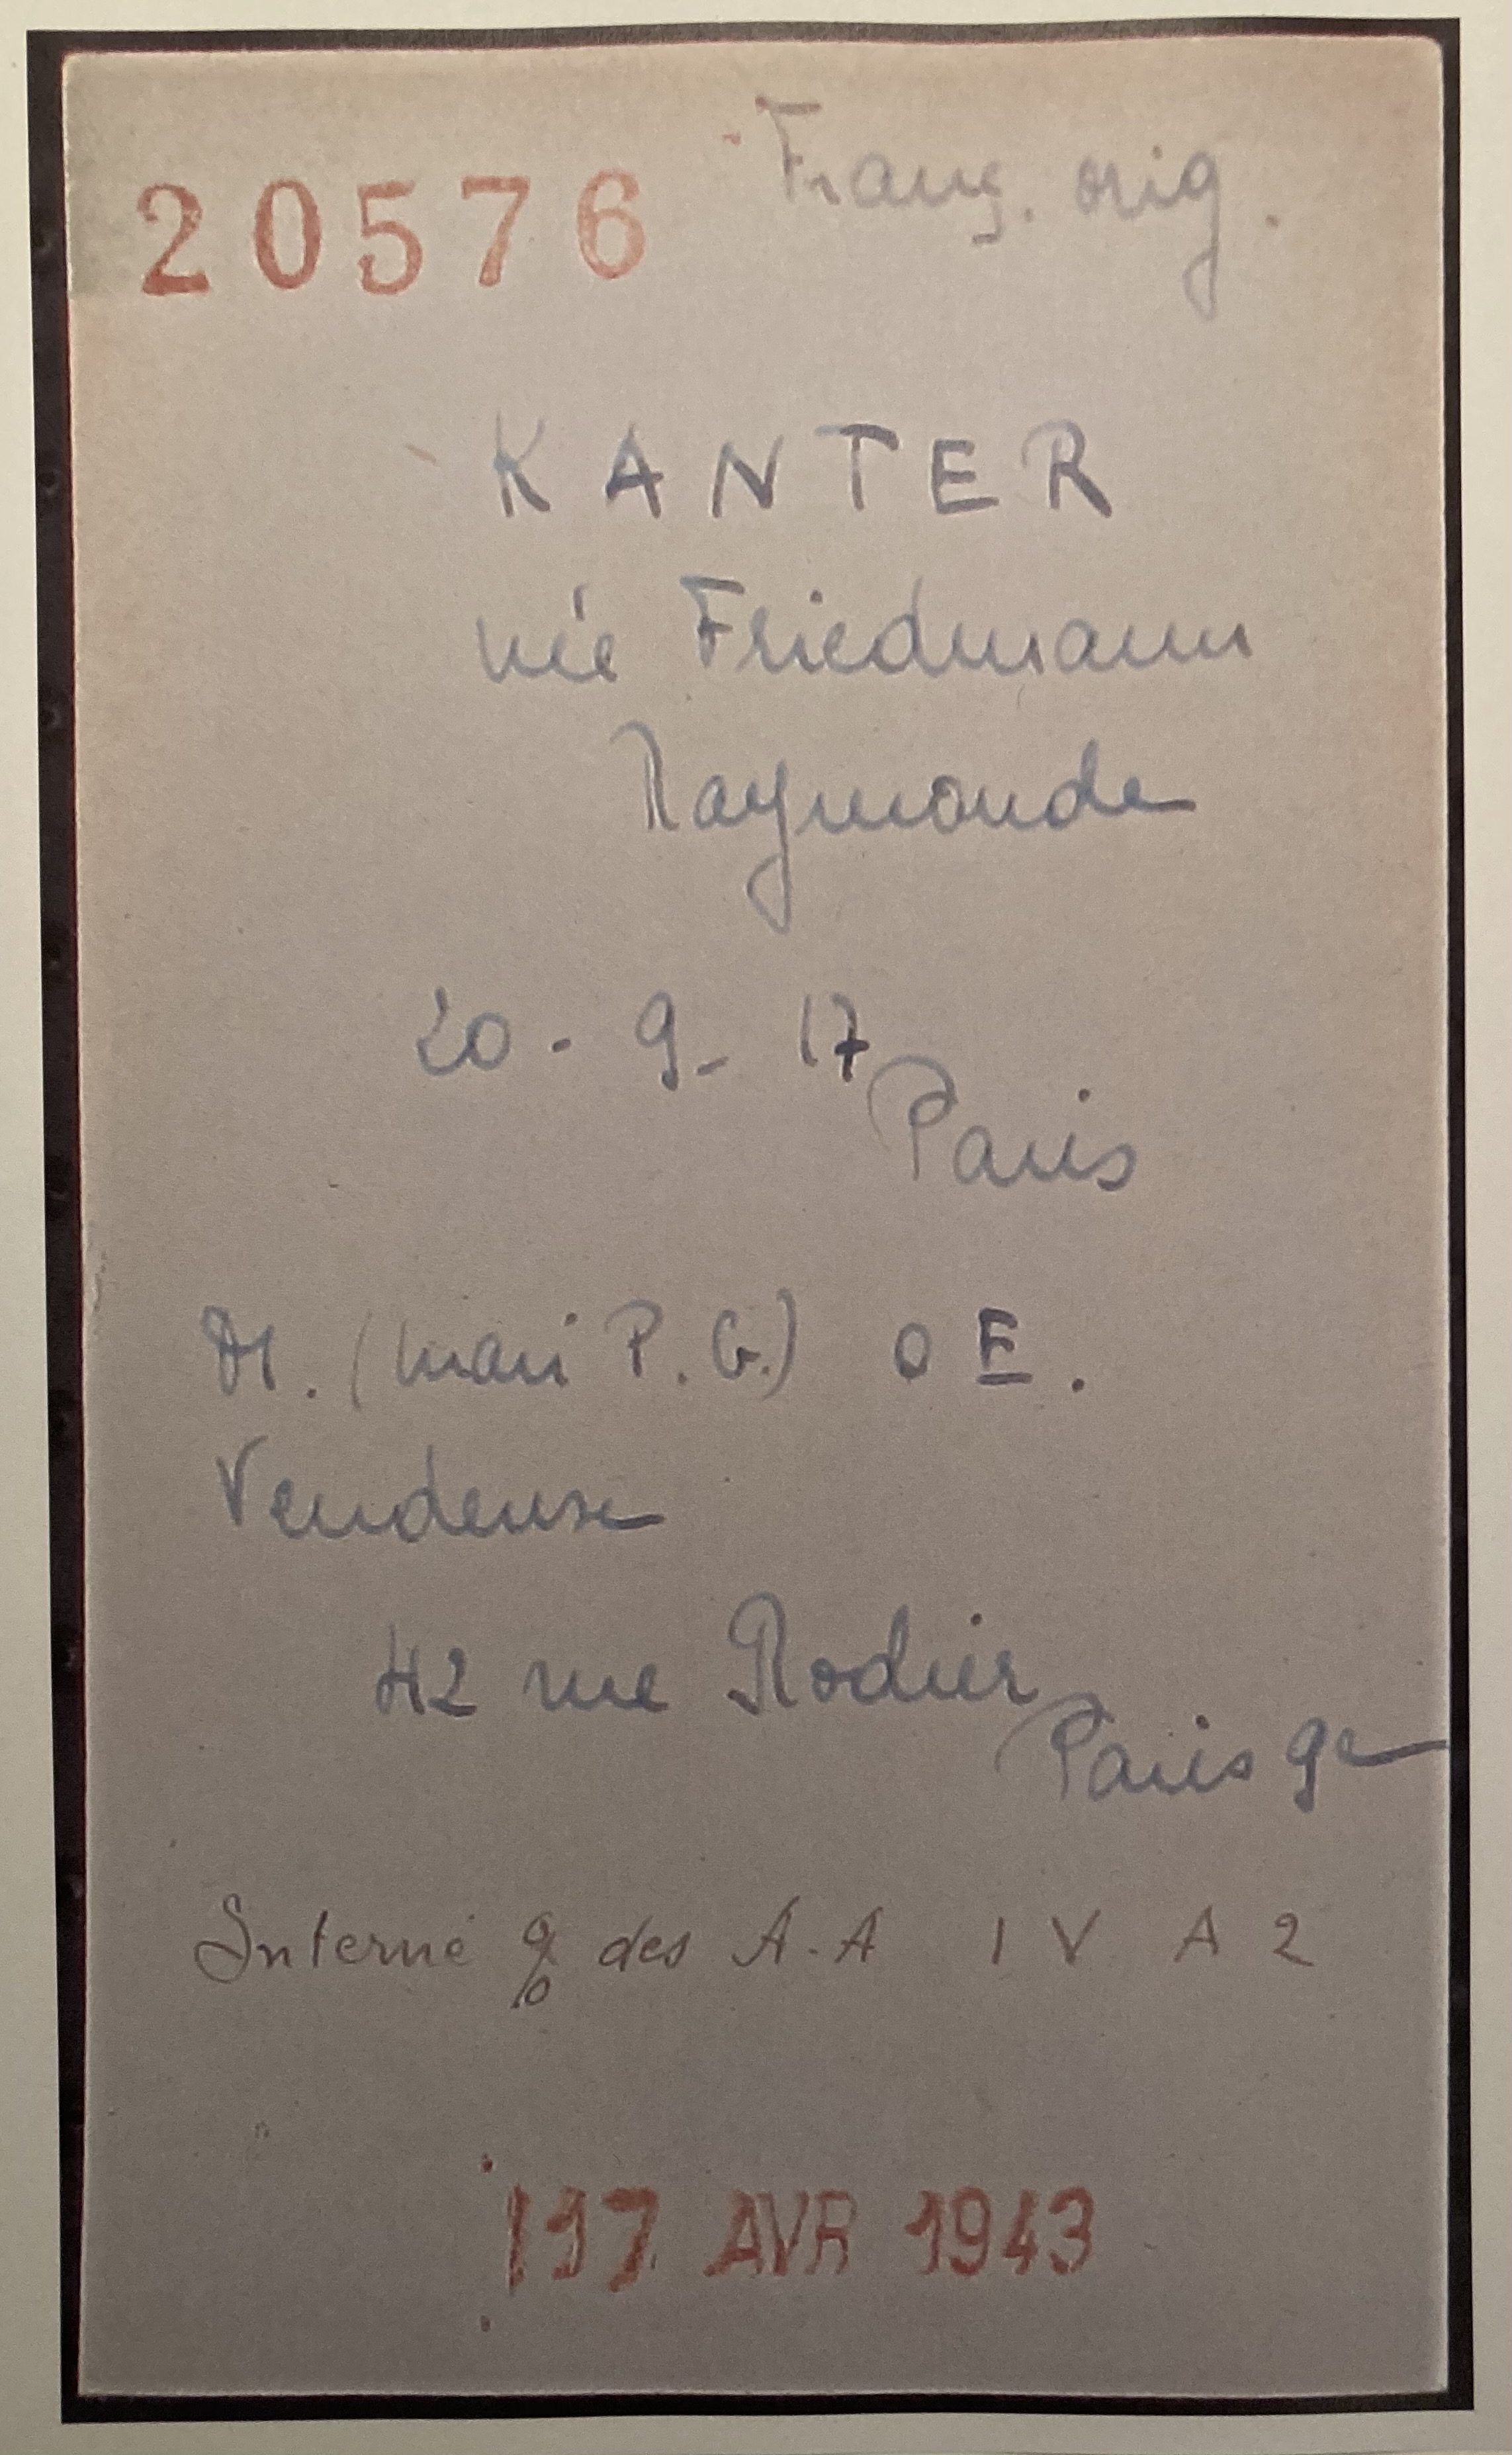 20576 Franç. orig.
KANTER
née Friedmann
Raymonde
20 - 9 - 17
Paris
M. (mari P. G.) O E.
Vendeuse
42 rue Rodier
Paris 9e
Interné des A.A IV A 2
17 AVR 1943